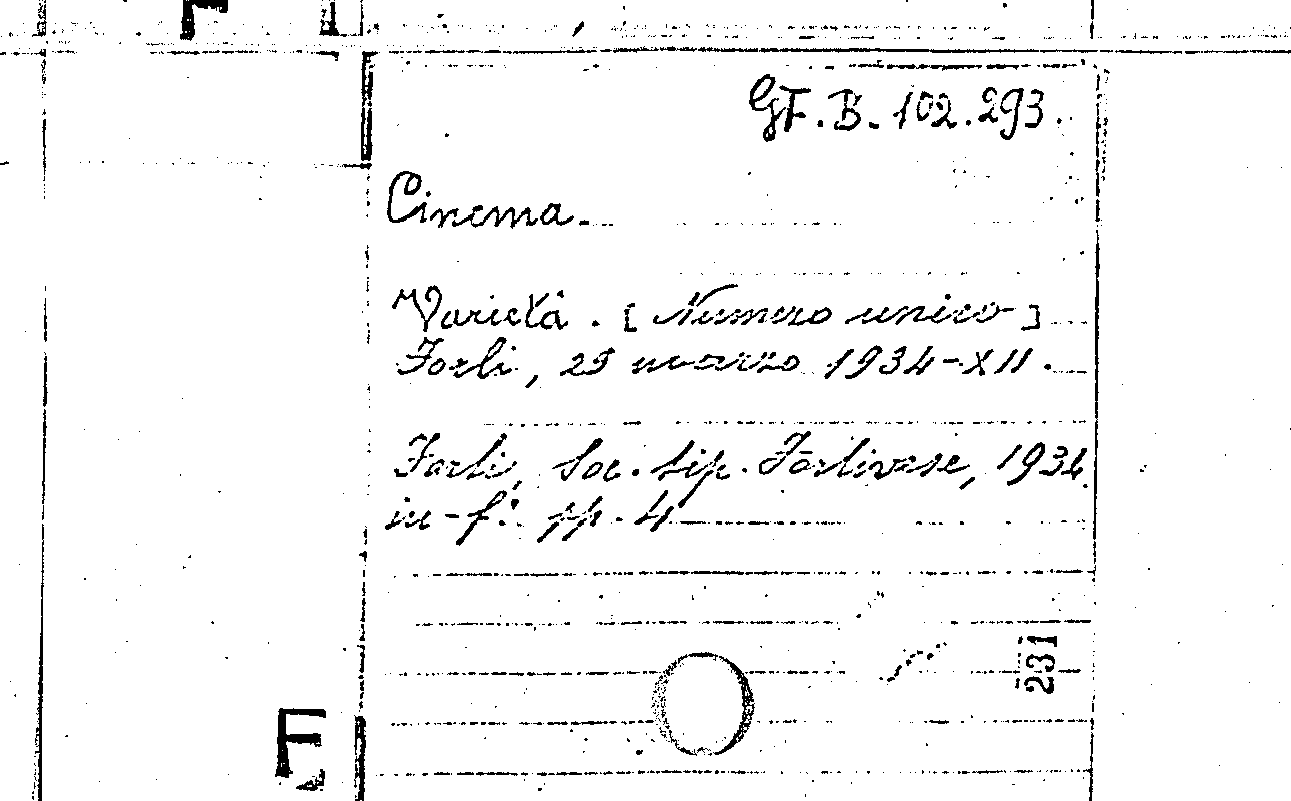 GF.B.102.293.
Cinema.
Varietà. [Numero unico]
Forlì, 25 marzo 1934-XII.
Forlì, Soc. tip. Forlivese, 1934.
in-f.° pp. 4
231
F